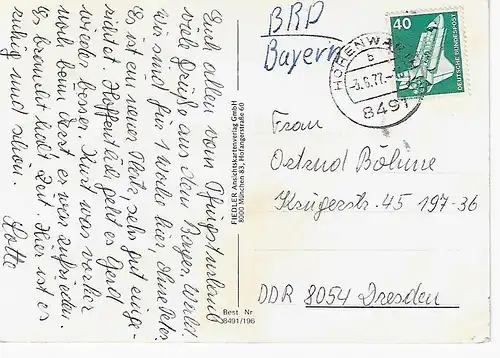 Euch allen vom Pfingsturlaub
viele Grüße aus dem Bayer. Wald.
Wir sind für 1 Woche hier, ohne Peter.
Es ist ein neues Netz, sehr gut einge-
richtet. Hoffentlich geht es Gerd
wieder besser. Kurt war vorher
noch beim Arzt er war zufrieden.
Es braucht halt Zeit. Hier ist es
ruhig und schön.
Lotte
FIEDLER Ansichtskartenverlag GmbH
8000 München 83, Hofangerstraße 60
Best. Nr.
8491/196
BRD
Bayern
HOHENWAR
b
-3.6.77.-
8491
40
DEUTSCHE BUNDESPOST
Frau
Ortrud Böhme
Krügerstr. 45 197-36
DDR 8054 Dresden